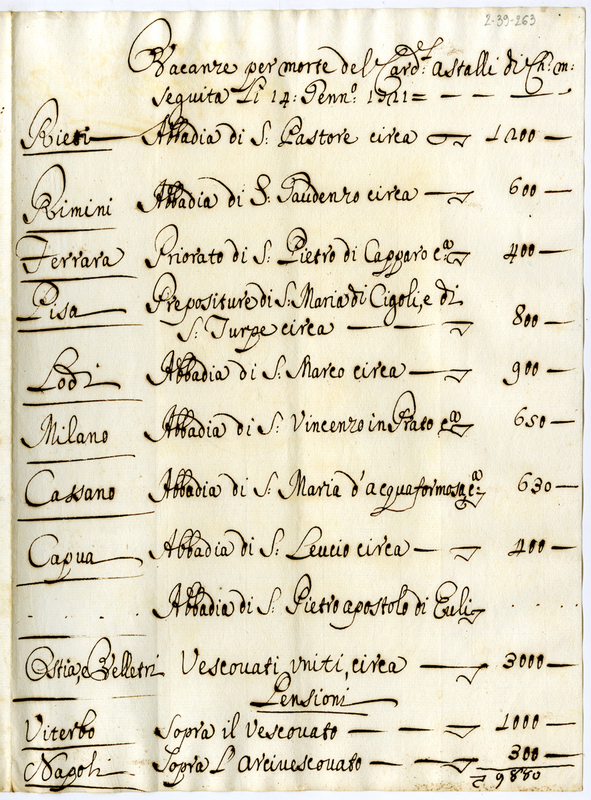 2-39-263
Vacanze per morte del Card.l Astalli di Ch: m:
seguita li 14: Genn.o 1721 =
Rieti Abbadia di S: Pastore circa 1200
Rimini Abbadia di S: Gaudenzo circa 600
Ferrara Priorato di S: Pietro di Capparo c.a 400
Pisa Prepositure di S: Maria di Cigoli, e di
S: Turpe circa 800
Lodi Abbadia di S: Marco circa 900
Milano Abbadia di S: Vincenzo in Prato c.a 650
Cassano Abbadia di S: Maria d'acquaformosa c.a 630
Capua Abbadia di S: Leucio circa 400
Abbadia di S: Pietro apostolo di Euli
Ostia, e Velletri Vescouati vniti, circa 3000
Pensioni
Viterbo Sopra il Vescouato 1000
Napoli Sopra l'Arciuescouato 300
9880